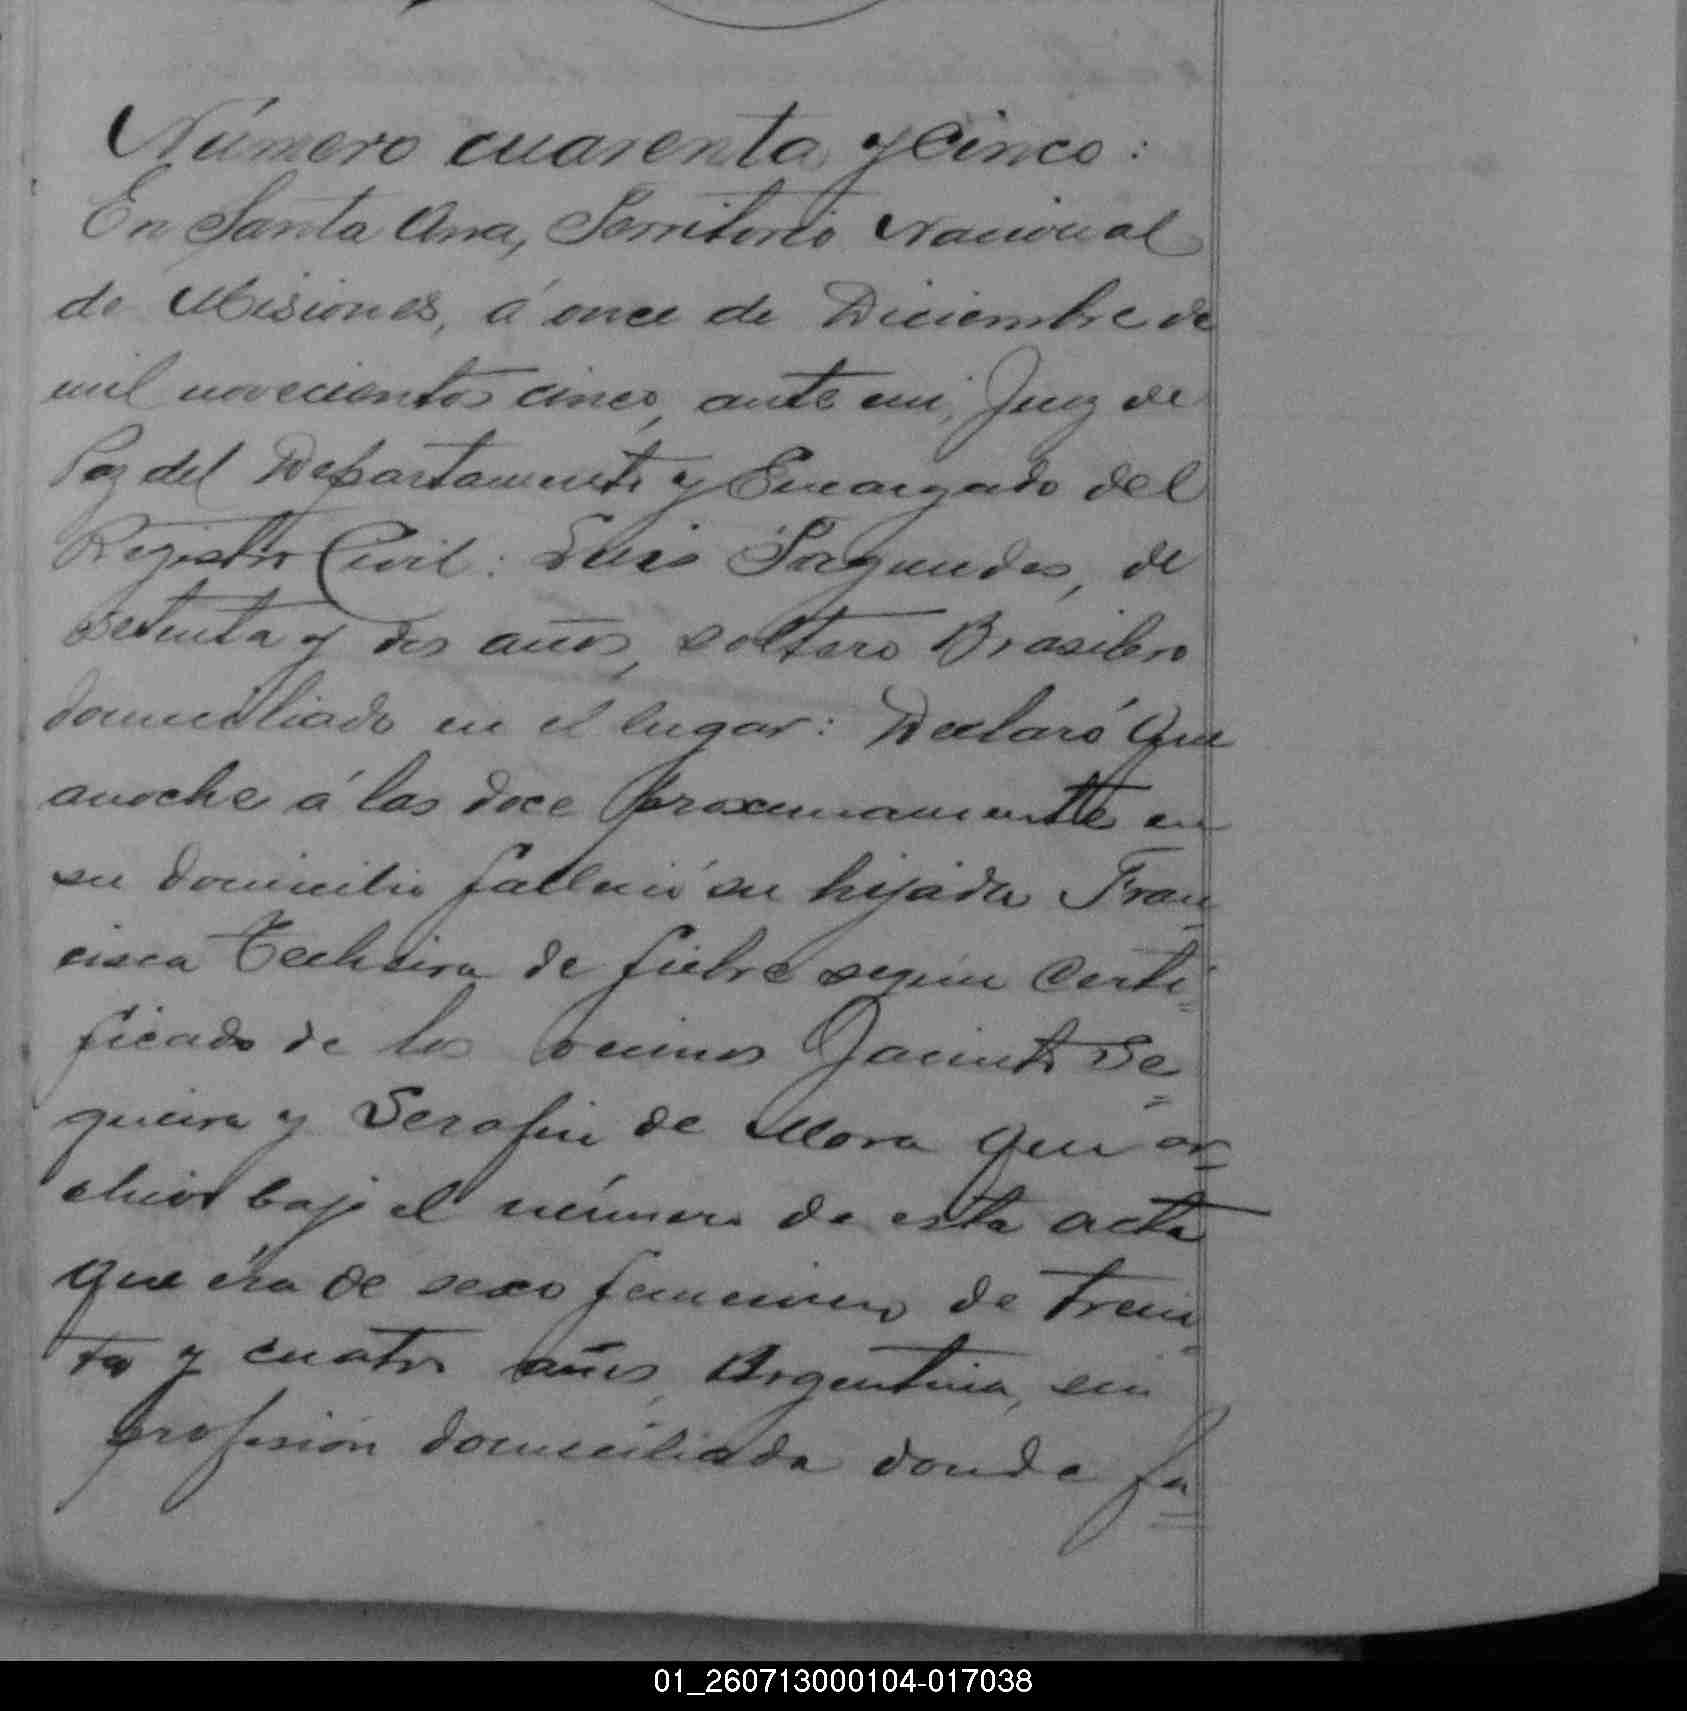 Número cuarenta y Cinco:
En Santa Ana, Territorio Nacional
de Misiones, á once de Diciembre de
mil novecientos cinco, ante mi, Juez de
Paz del Departamento y Encargado del
Registro Civil: Luis Fagundes, de
setenta y dos años, soltero Brasilero
domiciliado en el lugar: Declaró Que
anoche á las doce proxemamente en
su domicilio falleció su hijada Fran
cisca Techeira de fiebre según Certi=
ficado de los vecinos Jacinto Se=
queira y Serafin de Mora que ar=
chivo bajo el número de esta acta
que éra de sexo femenino de trein=
ta y cuatro años, Argentina, sin
profesión domiciliada donde fa=
01_260713000104-017038